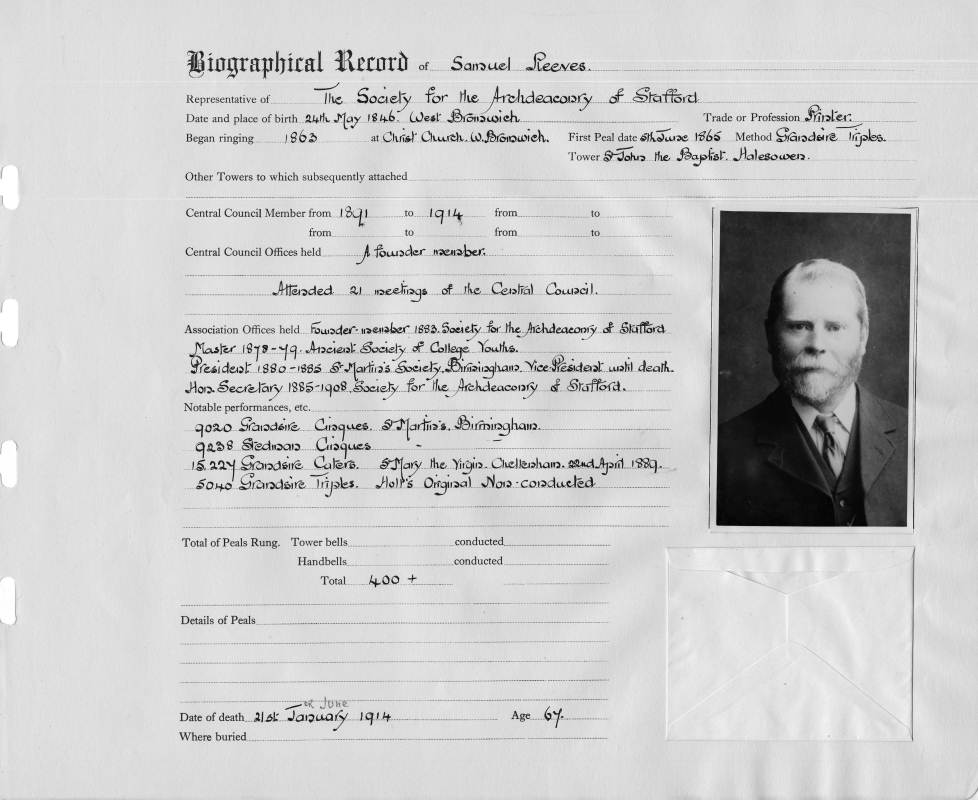 Biographical Record of Samuel Reeves.
Representative of The Society for the Archdeaconry of Stafford
Date and place of birth 24th May 1846. West Bromwich Trade or Profession Printer.
Began ringing 1863 at Christ Church. W. Bromwich. First Peal date 5th June 1865 Method Grandsire Triples.
Tower St John the Baptist. Halesowen.
Other Towers to which subsequently attached
Central Council Member from 1891 to 1914 from to
from to from to
Central Council Offices held A founder member.
Attended 21 meetings of the Central Council.
Association Offices held Founder-member 1883. Society for the Archdeaconry of Stafford
Master 1878-79. Ancient Society of College Youths.
President 1880-1885 St Martin's Society. Birmingham. Vice-President until death.
Hon. Secretary 1885-1908. Society for the Archdeaconry of Stafford.
Notable performances, etc.
9020 Grandsire Cinques. St Martin's. Birmingham.
9238 Stedman Cinques - -
15,227 Grandsire Caters. St Mary the Virgin. Cheltenham. 22nd April 1889.
5040 Grandsire Triples. Holt's Original Non-conducted
Total of Peals Rung. Tower bells conducted
Handbells conducted
Total 400 +
Details of Peals
or June
Date of death 21st January 1914 Age 67.
Where buried